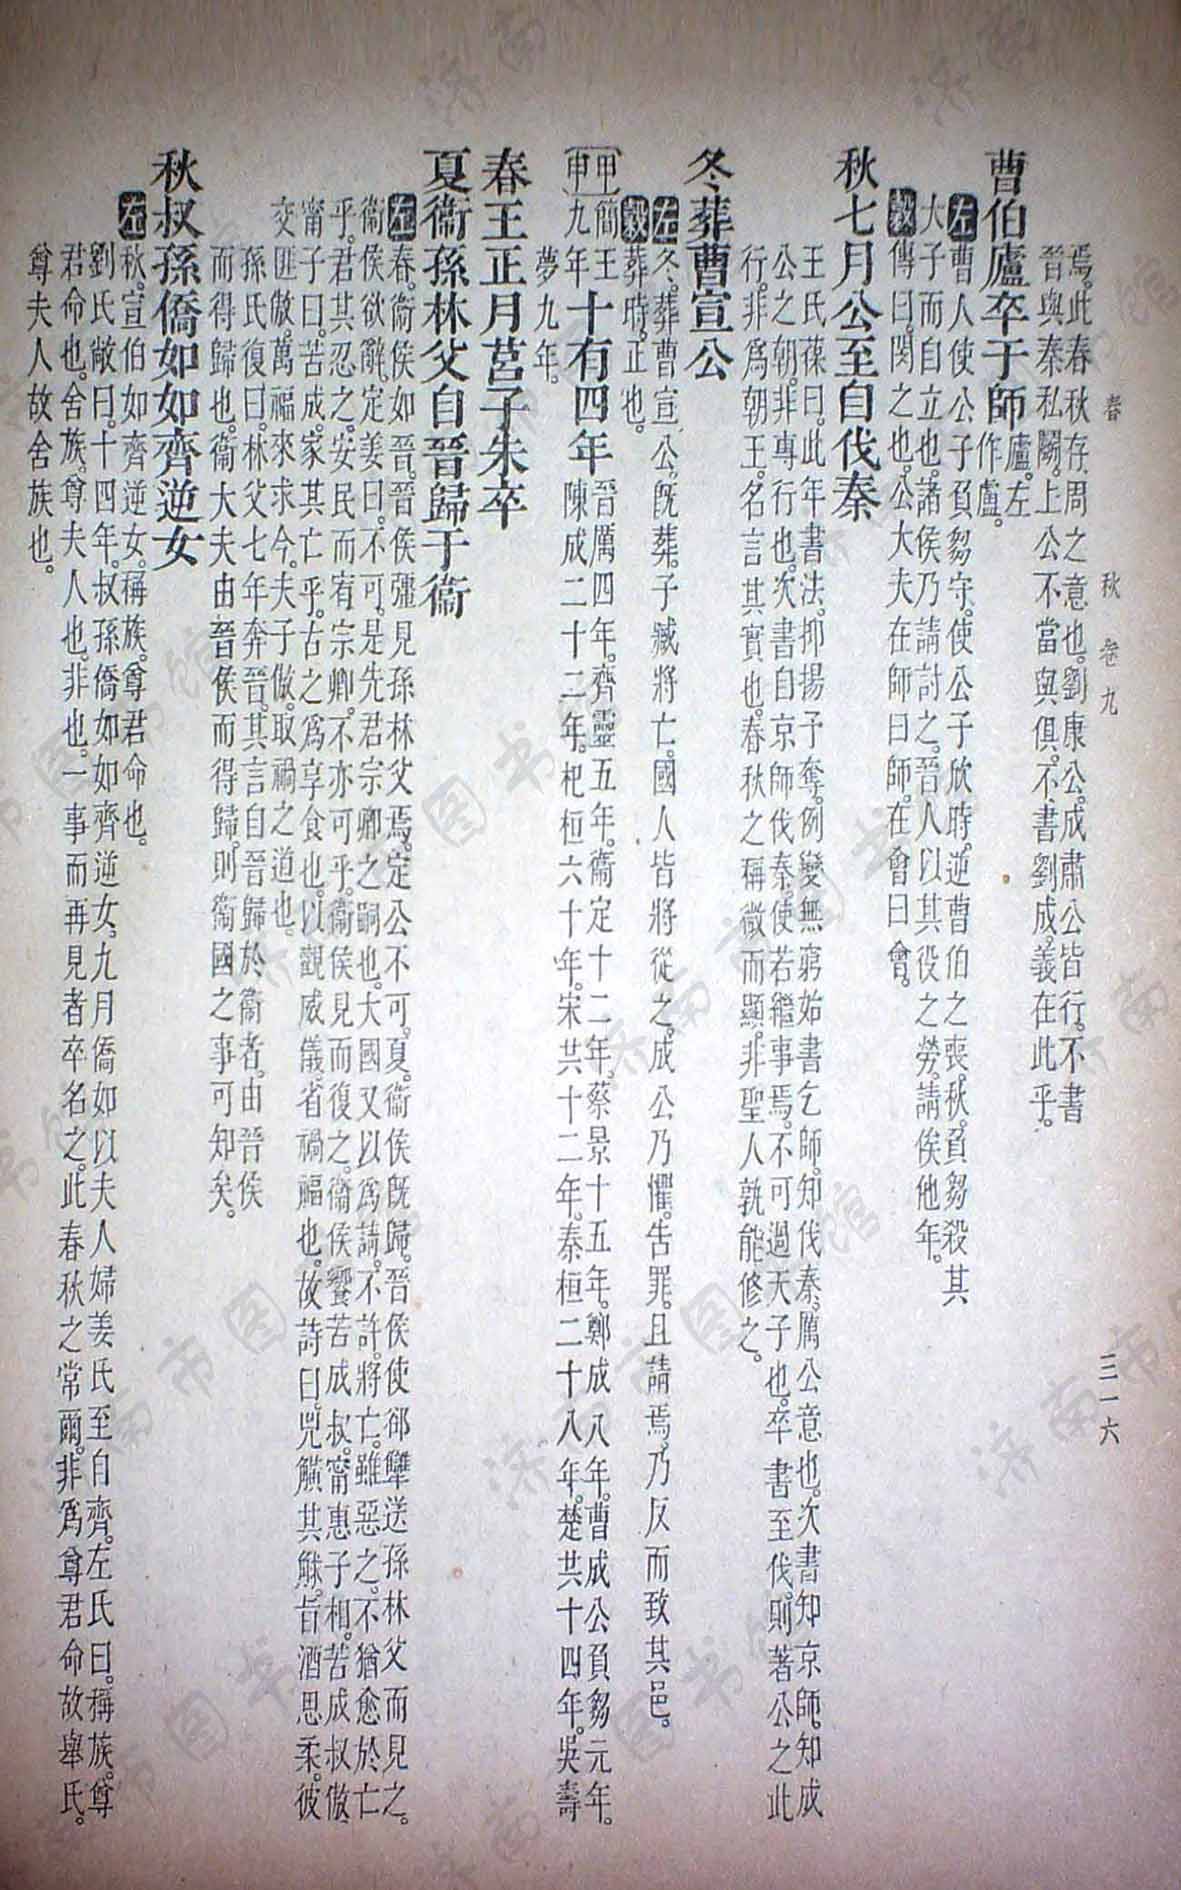 春　秋　卷九　三一六
焉。此春秋存周之意也。劉康公。成肅公皆行。不書
晉與秦私鬬。上公不當與俱。不書劉成。義在此乎。
曹伯廬卒于師
廬。左
作盧。
左 曹人使公子負芻守。使公子欣時。逆曹伯之喪。秋。負芻殺其
大子而自立也。諸侯乃請討之。晉人以其役之勞。請俟他年。
穀 傳曰。閔之也。公大夫在師曰師。在會曰會。
秋七月公至自伐秦
王氏葆曰。此年書法。抑揚予奪。例變無窮。始書乞師。知伐秦。厲公意也。次書知京師。知成
公之朝。非專行也。次書自京師伐秦。使若繼事焉。不可過天子也。卒書至伐。則著公之此
行。非爲朝王。名言其實也。春秋之稱微而顯。非聖人孰能修之。
冬葬曹宣公
左 冬。葬曹宣公。旣葬。子臧將亡。國人皆將從之。成公乃懼。吿罪。且請焉。乃反而致其邑。
穀 葬時。正也。
甲申 簡王九年 十有四年 晉厲四年。齊靈五年。衞定十二年。蔡景十五年。鄭成八年。曹成公負芻元年。
陳成二十二年。杞桓六十年。宋共十二年。秦桓二十八年。楚共十四年。吳壽
夢九年。
春王正月莒子朱卒
夏衞孫林父自晉歸于衞
左 春。衞侯如晉。晉侯彊見孫林父焉。定公不可。夏。衞侯旣歸。晉侯使郤犨送孫林父而見之。
衞侯欲辭。定姜曰。不可。是先君宗卿之嗣也。大國又以爲請。不許。將亡。雖惡之。不猶愈於亡
乎。君其忍之。安民而宥宗卿。不亦可乎。衞侯見而復之。衞侯饗苦成叔。甯惠子相。苦成叔傲。
甯子曰。苦成。家其亡乎。古之爲享食也。以觀威儀。省禍福也。故詩曰。兕觵其觩。旨酒思柔。彼
交匪傲。萬福來求。今夫子傲。取禍之道也。
孫氏復曰。林父七年奔晉。其言自晉歸於衞者。由晉侯
而得歸也。衞大夫由晉侯而得歸。則衞國之事可知矣。
秋叔孫僑如如齊逆女
左 秋。宣伯如齊逆女。稱族。尊君命也。
劉氏敞曰。十四年。叔孫僑如如齊逆女。九月僑如以夫人婦姜氏至自齊。左氏曰。稱族。尊
君命也。舍族。尊夫人也。非也。一事而再見者卒名之。此春秋之常爾。非爲尊君命故舉氏。
尊夫人故舍族也。